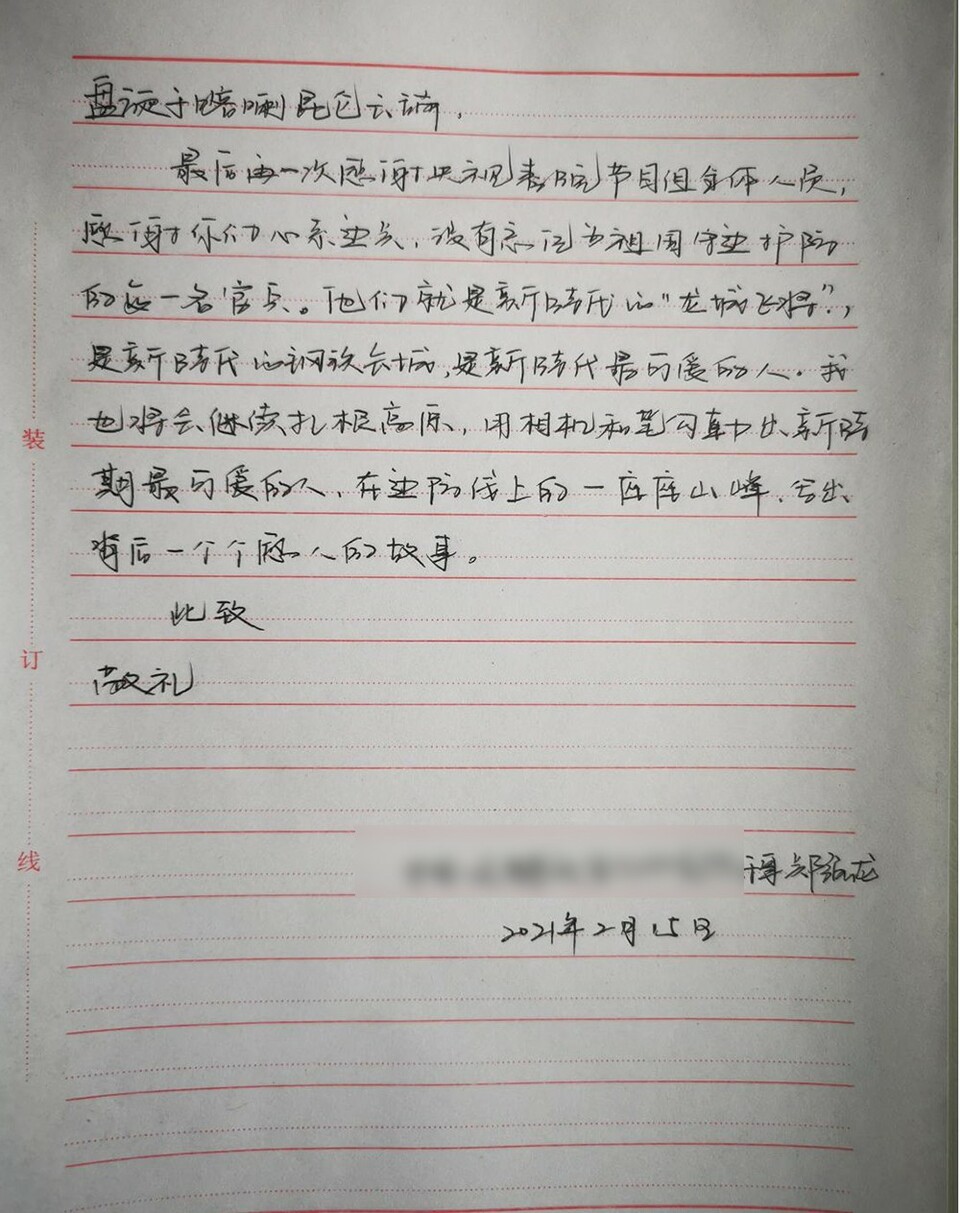 盘旋于喀喇昆仑云端。
最后再一次感谢央视春晚节目组全体人员，
感谢你们心系边关，没有忘记为祖国守边护防
的每一名官兵。他们就是新时代的“龙城飞将”，
是新时代的钢铁长城，是新时代最可爱的人。我
也将会继续扎根高原，用相机和笔勾勒出新时
期最可爱的人，在边防线上的一座座山峰，写出
背后一个个感人的故事。
此致
敬礼
郑强龙
2021年2月15日
装
订
线